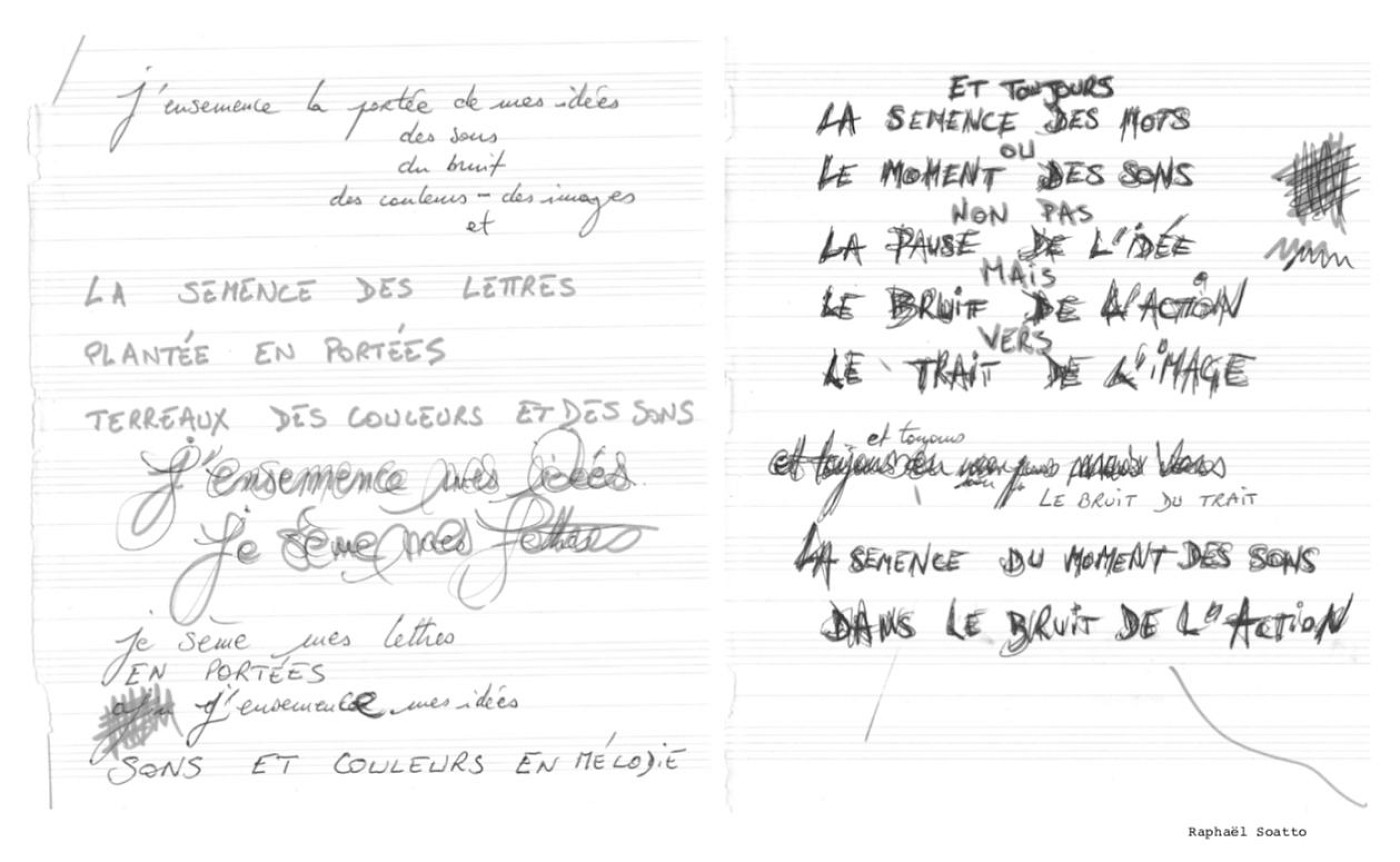 j'ensemence la portée de mes idées
des sons
du bruit
des couleurs - des images
et
LA SEMENCE DES LETTRES
PLANTÉE EN PORTÉES
TERREAUX DES COULEURS ET DES SONS
J'ensemence mes idées.
Je sème mes lettres
je sème mes lettres
EN PORTÉES
j'ensemence mes idées
SONS ET COULEURS EN MÉLODIE
ET TOUJOURS
LA SEMENCE DES MOTS
OU
LE MOMENT DES SONS
NON PAS
LA PAUSE DE L'IDÉE
MAIS
LE BRUIT DE L'ACTION
VERS
LE TRAIT DE L'IMAGE
et toujours
et toujours
LE BRUIT DU TRAIT
LA SEMENCE DU MOMENT DES SONS
DANS LE BRUIT DE L'ACTION
Raphaël Soatto